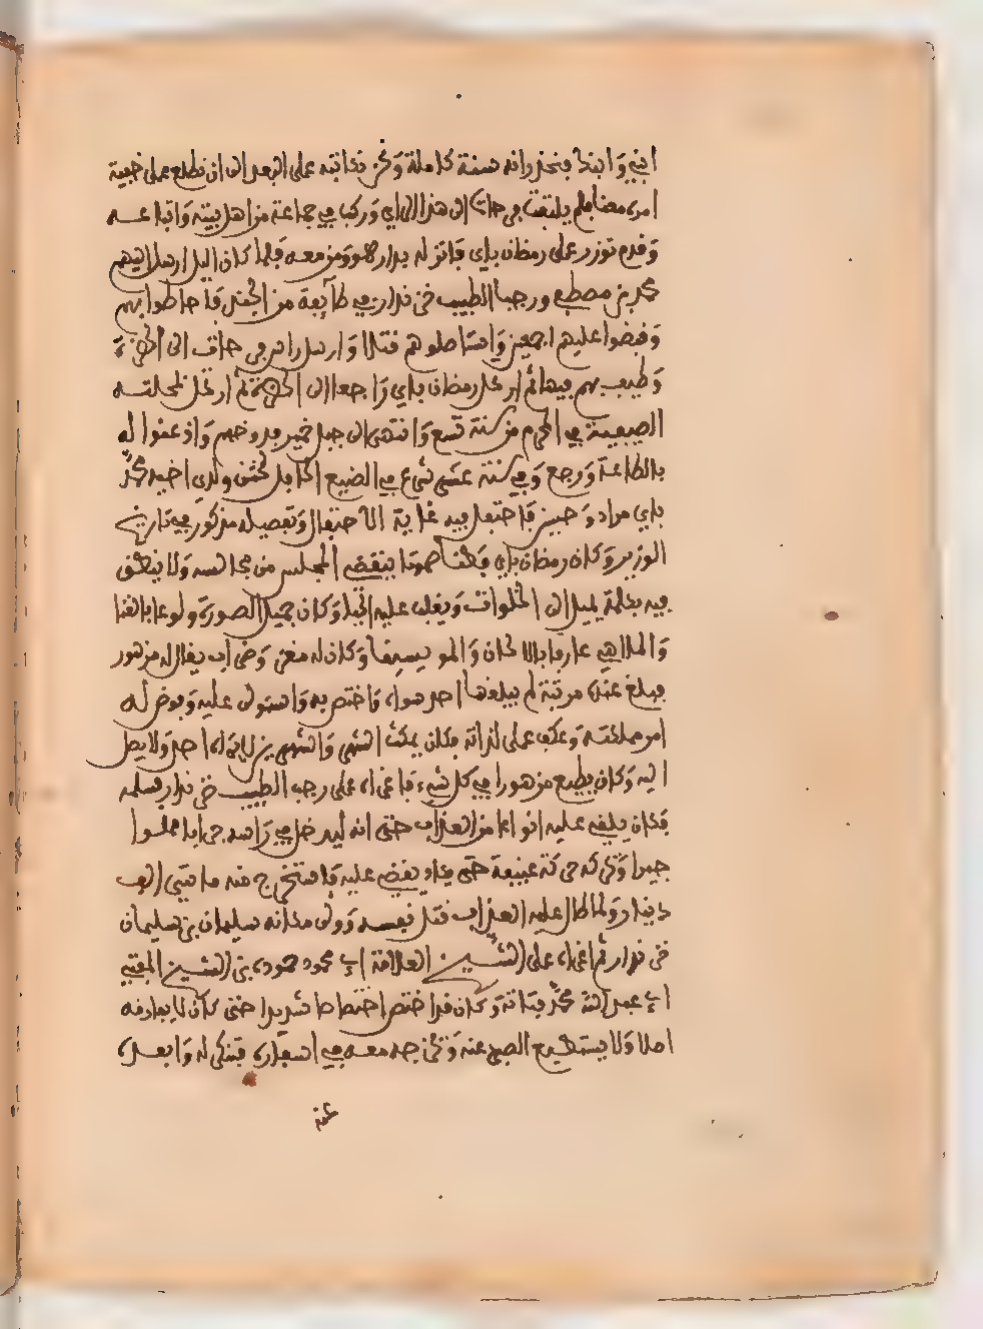 ابنيه وابنة بنخزوانه سنة كاملة وتحن نكاتبه على البعد الى ان نطلع على خبيئة
امره معنا فلم يلتفت مراد الى هذا الراي وركب في جماعة من اهل بيته واتباعه
وقدم توزر على رمضان باي فانزله بدار هو ومن معه فلما كان اليل ارسل اليهم
محمد بن مصطفى ورجب الطبيب خزندار في طائفة من الجند فاحاطوا بهم
وقبضوا عليهم اجمعين واستاصلوهم قتلا وارسل راس مراد الى
وطيف بهم فيها ثم ارتحل رمضان باي راجعا الى ثم ارتحل لمحلته
الصيفية في المحرم من سنة تسع وانتهى الى جبل خمير فدوخهم واذعنوا له
بالطاعة ورجع وفي سنة عشر شرع في الصنيع الحافل لختن ولدي اخيه محمد
باي مراد وحسين فاحتفل فيه غاية الاحتفال وتفصيله مذكور في تاريخ
الوزير وكان رمضان باي صموتا ينقضي المجلس من مجالسه ولا ينطق
فيه بكلمة يميل الى الخلوات ويغلب عليه الحيا وكان جميل الصورة ولوعا بالغنا
والملاهي عارفا بالالحان والموسيقا وكان له مغن وضراب يقال له مزهود
فبلغ عنده مرتبة لم يبلغها احد سواه فاختص به واستولى عليه وفوض له
امر مملكته وعكف على لذاته فكان يمكث الشهر والشهرين لا يراه احد ولا يصل
اليه وكان يطيع مزهودا في كل شيء فاغراه على رجب الطبيب خزندار فسلمه
فكان يلقي عليه انواعا من العذاب حتى انه ليدخل في راسه مملوا
جمرا وحركه حركة عنيفة حتى يكاد يقضي عليه فاستخرج منه مايتي الف
دينار ولما طال عليه العذاب قتل نفسه وولى مكانه سليمان بن سليمان
خزندار ثم اغراه على الشيخ العلامة ابي محمد حمودة بن الشيخ المفتي
ابي عبد الله محمد فتاتة وكان قد اختص اختصاصا شديدا حتى كان لا يفارقه
اصلا ولا يستطيع الصبر عنه وتخرجه معه في اسفاره فتنكر له وابعده
عنه